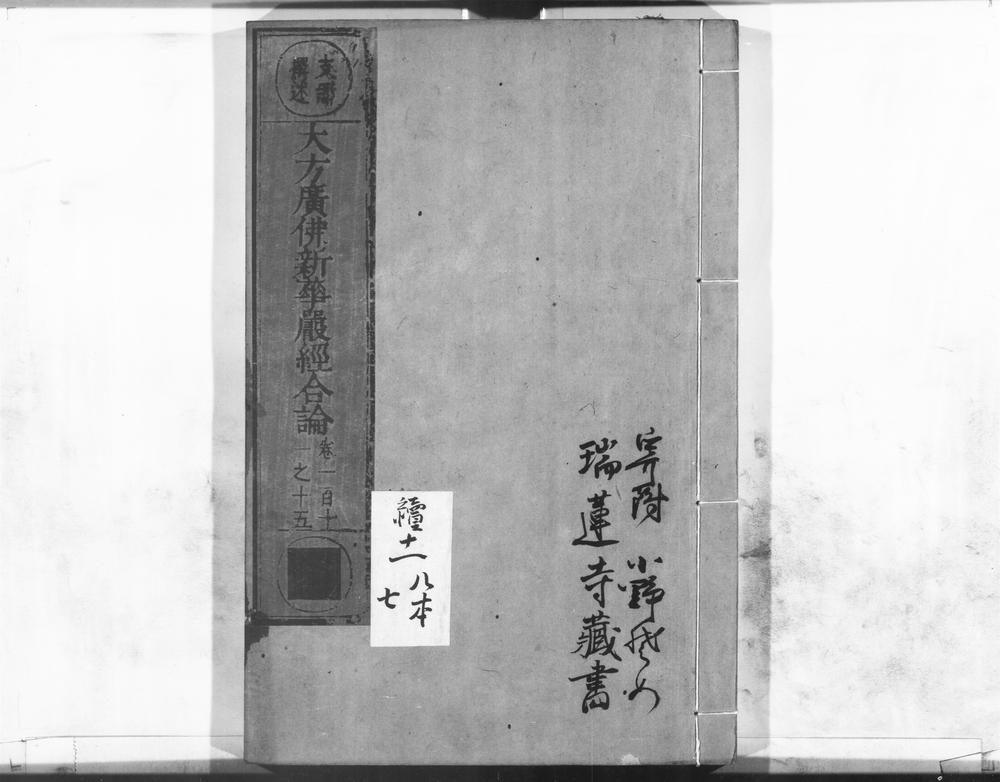 支那
撰述
大方廣佛新華嚴經合論
卷一百十
一之十五
寄附 小野
瑞蓮寺藏書
十一
八本
七